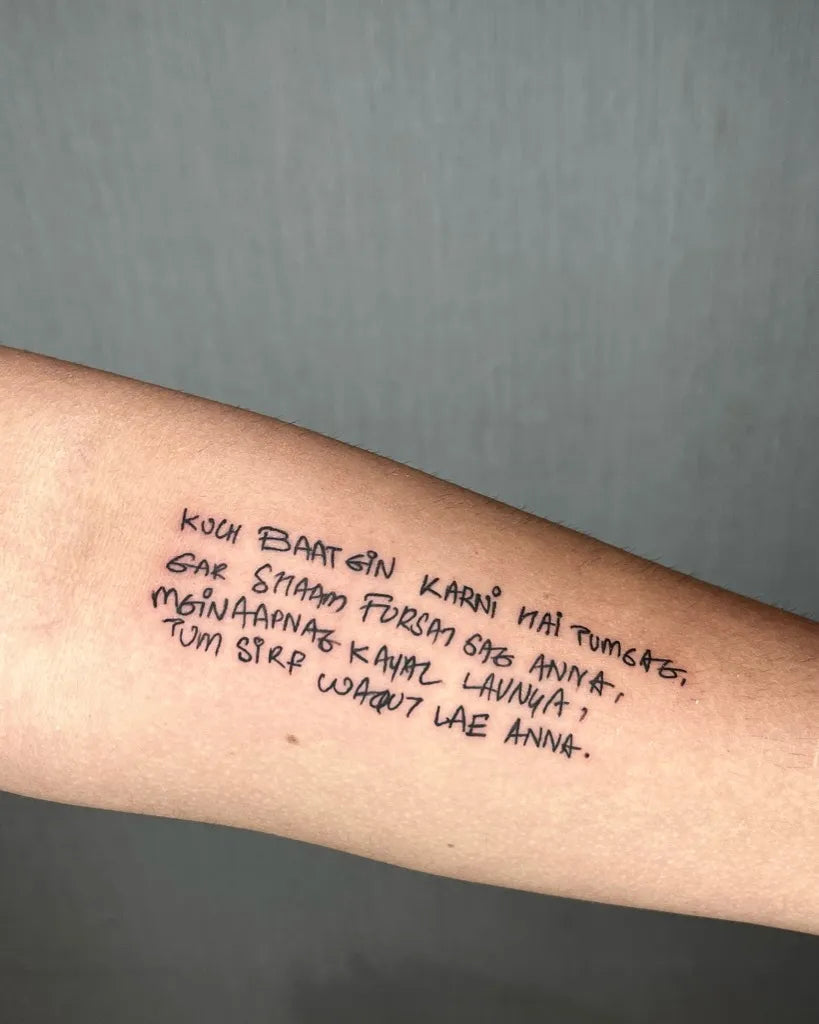 KUCH BAATEIN KARNI HAI TUMSAE,
GAR SHAAM FURSAT SAE ANNA,
MEIN AAPNAE KAYAL LAUNGA,
TUM SIRF WAQUT LAE ANNA.